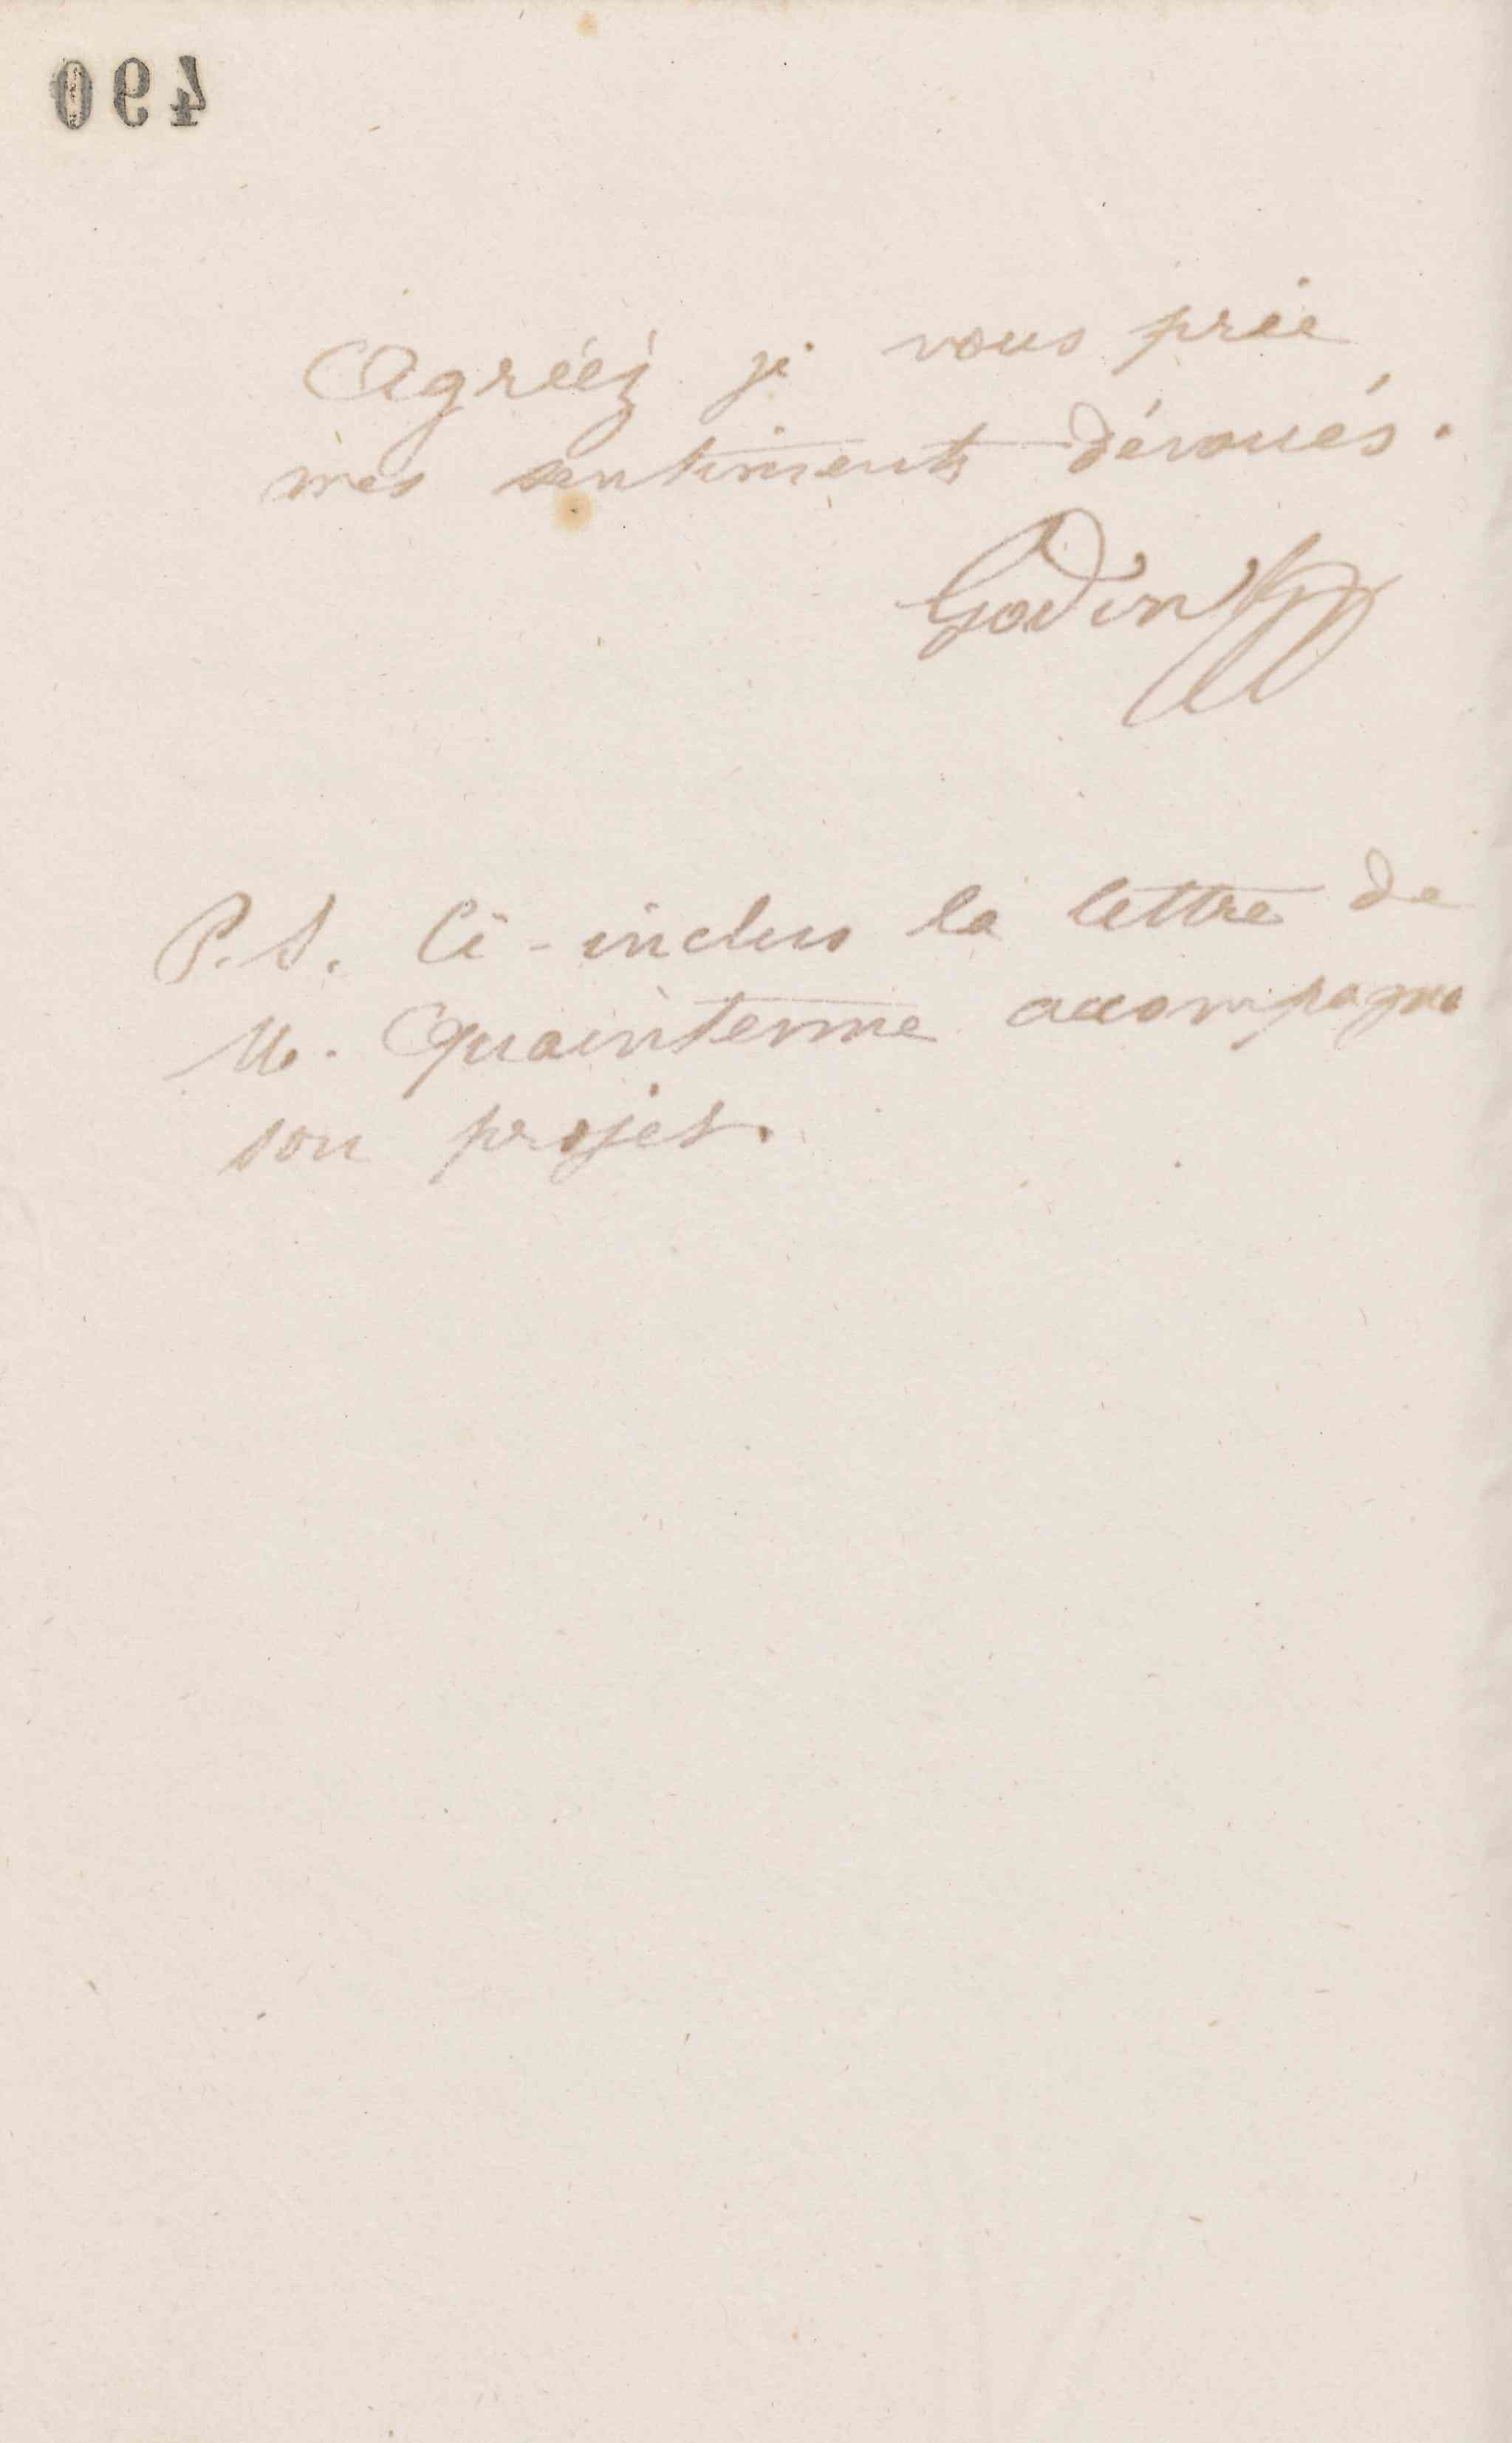 490
Agréez je vous prie,
mes sentiments dévoués.
Godin
P.S. Ci-inclus la lettre de
M. Quaintenne accompagne
son projet.